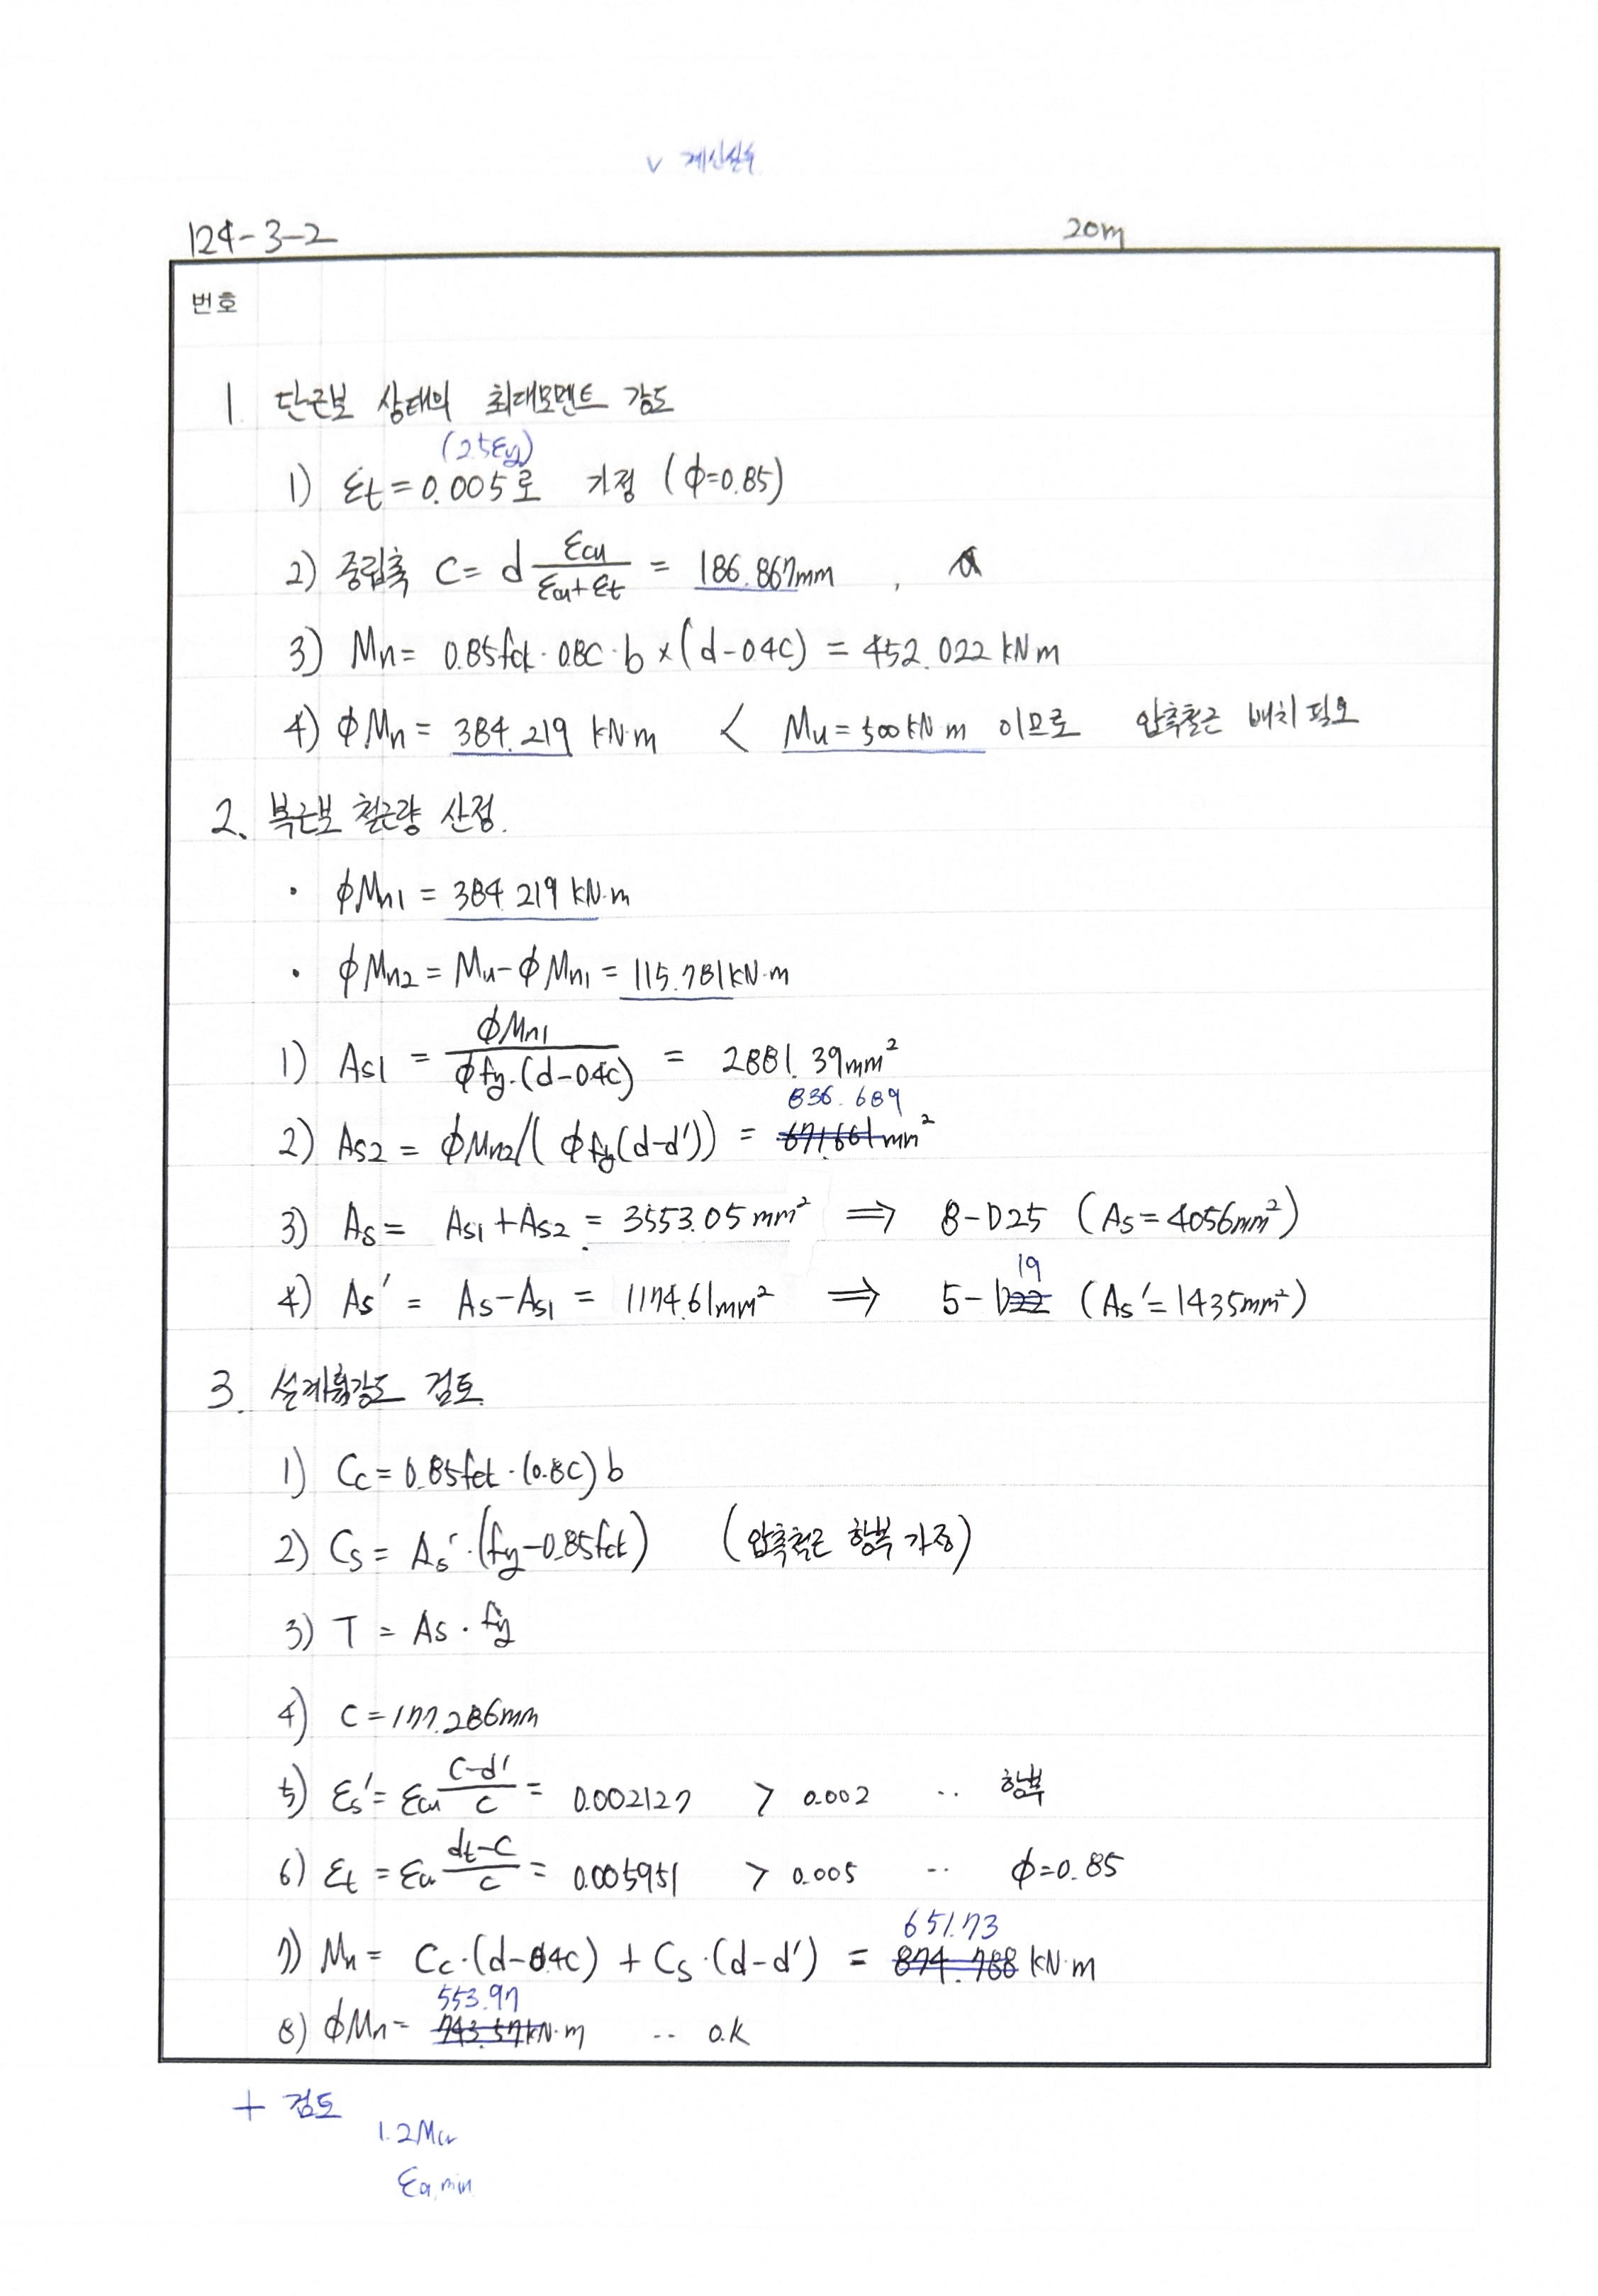 v 계산실수
124-3-2 20m
번호
1. 단근보 상태의 최대모멘트 강도
(2.5εy)
1) εt = 0.005로 가정 (ϕ=0.85)
2) 중립축 C = d εcu/(εcu+εt) = 186.867mm ,
3) Mn = 0.85fck · 0.8C · b × (d-0.4C) = 452.022 kN m
4) ϕMn = 384.219 kN·m < Mu = 500 kN m 이므로 압축철근 배치 필요
2. 복근보 철근량 산정.
· ϕMn1 = 384.219 kN·m
· ϕMn2 = Mu - ϕMn1 = 115.781 kN·m
1) As1 = ϕMn1/(ϕfy·(d-0.4C)) = 2881.39mm²
836.689
2) As2 = ϕMn2/(ϕfy(d-d')) = 671.661mm²
3) As = As1 + As2 = 3553.05 mm² ⇒ 8-D25 (As = 4056mm²)
19
4) As' = As - As1 = 1174.61mm² ⇒ 5-D22 (As' = 1435mm²)
3. 설계휨강도 검토
1) Cc = 0.85fck · (0.8C) b
2) Cs = As' · (fy - 0.85fck) (압축철근 항복 가정)
3) T = As · fy
4) C = 177.286mm
5) εs' = εcu (C-d')/C = 0.002127 > 0.002 ∴ 항복
6) εt = εcu (dt-C)/C = 0.005951 > 0.005 ∴ ϕ=0.85
651.73
7) Mn = Cc·(d-0.4C) + Cs·(d-d') = 874.788 kN·m
553.97
8) ϕMn = 743.57kN·m ∴ O.K
+ 검토
1.2Mcr
εa,min